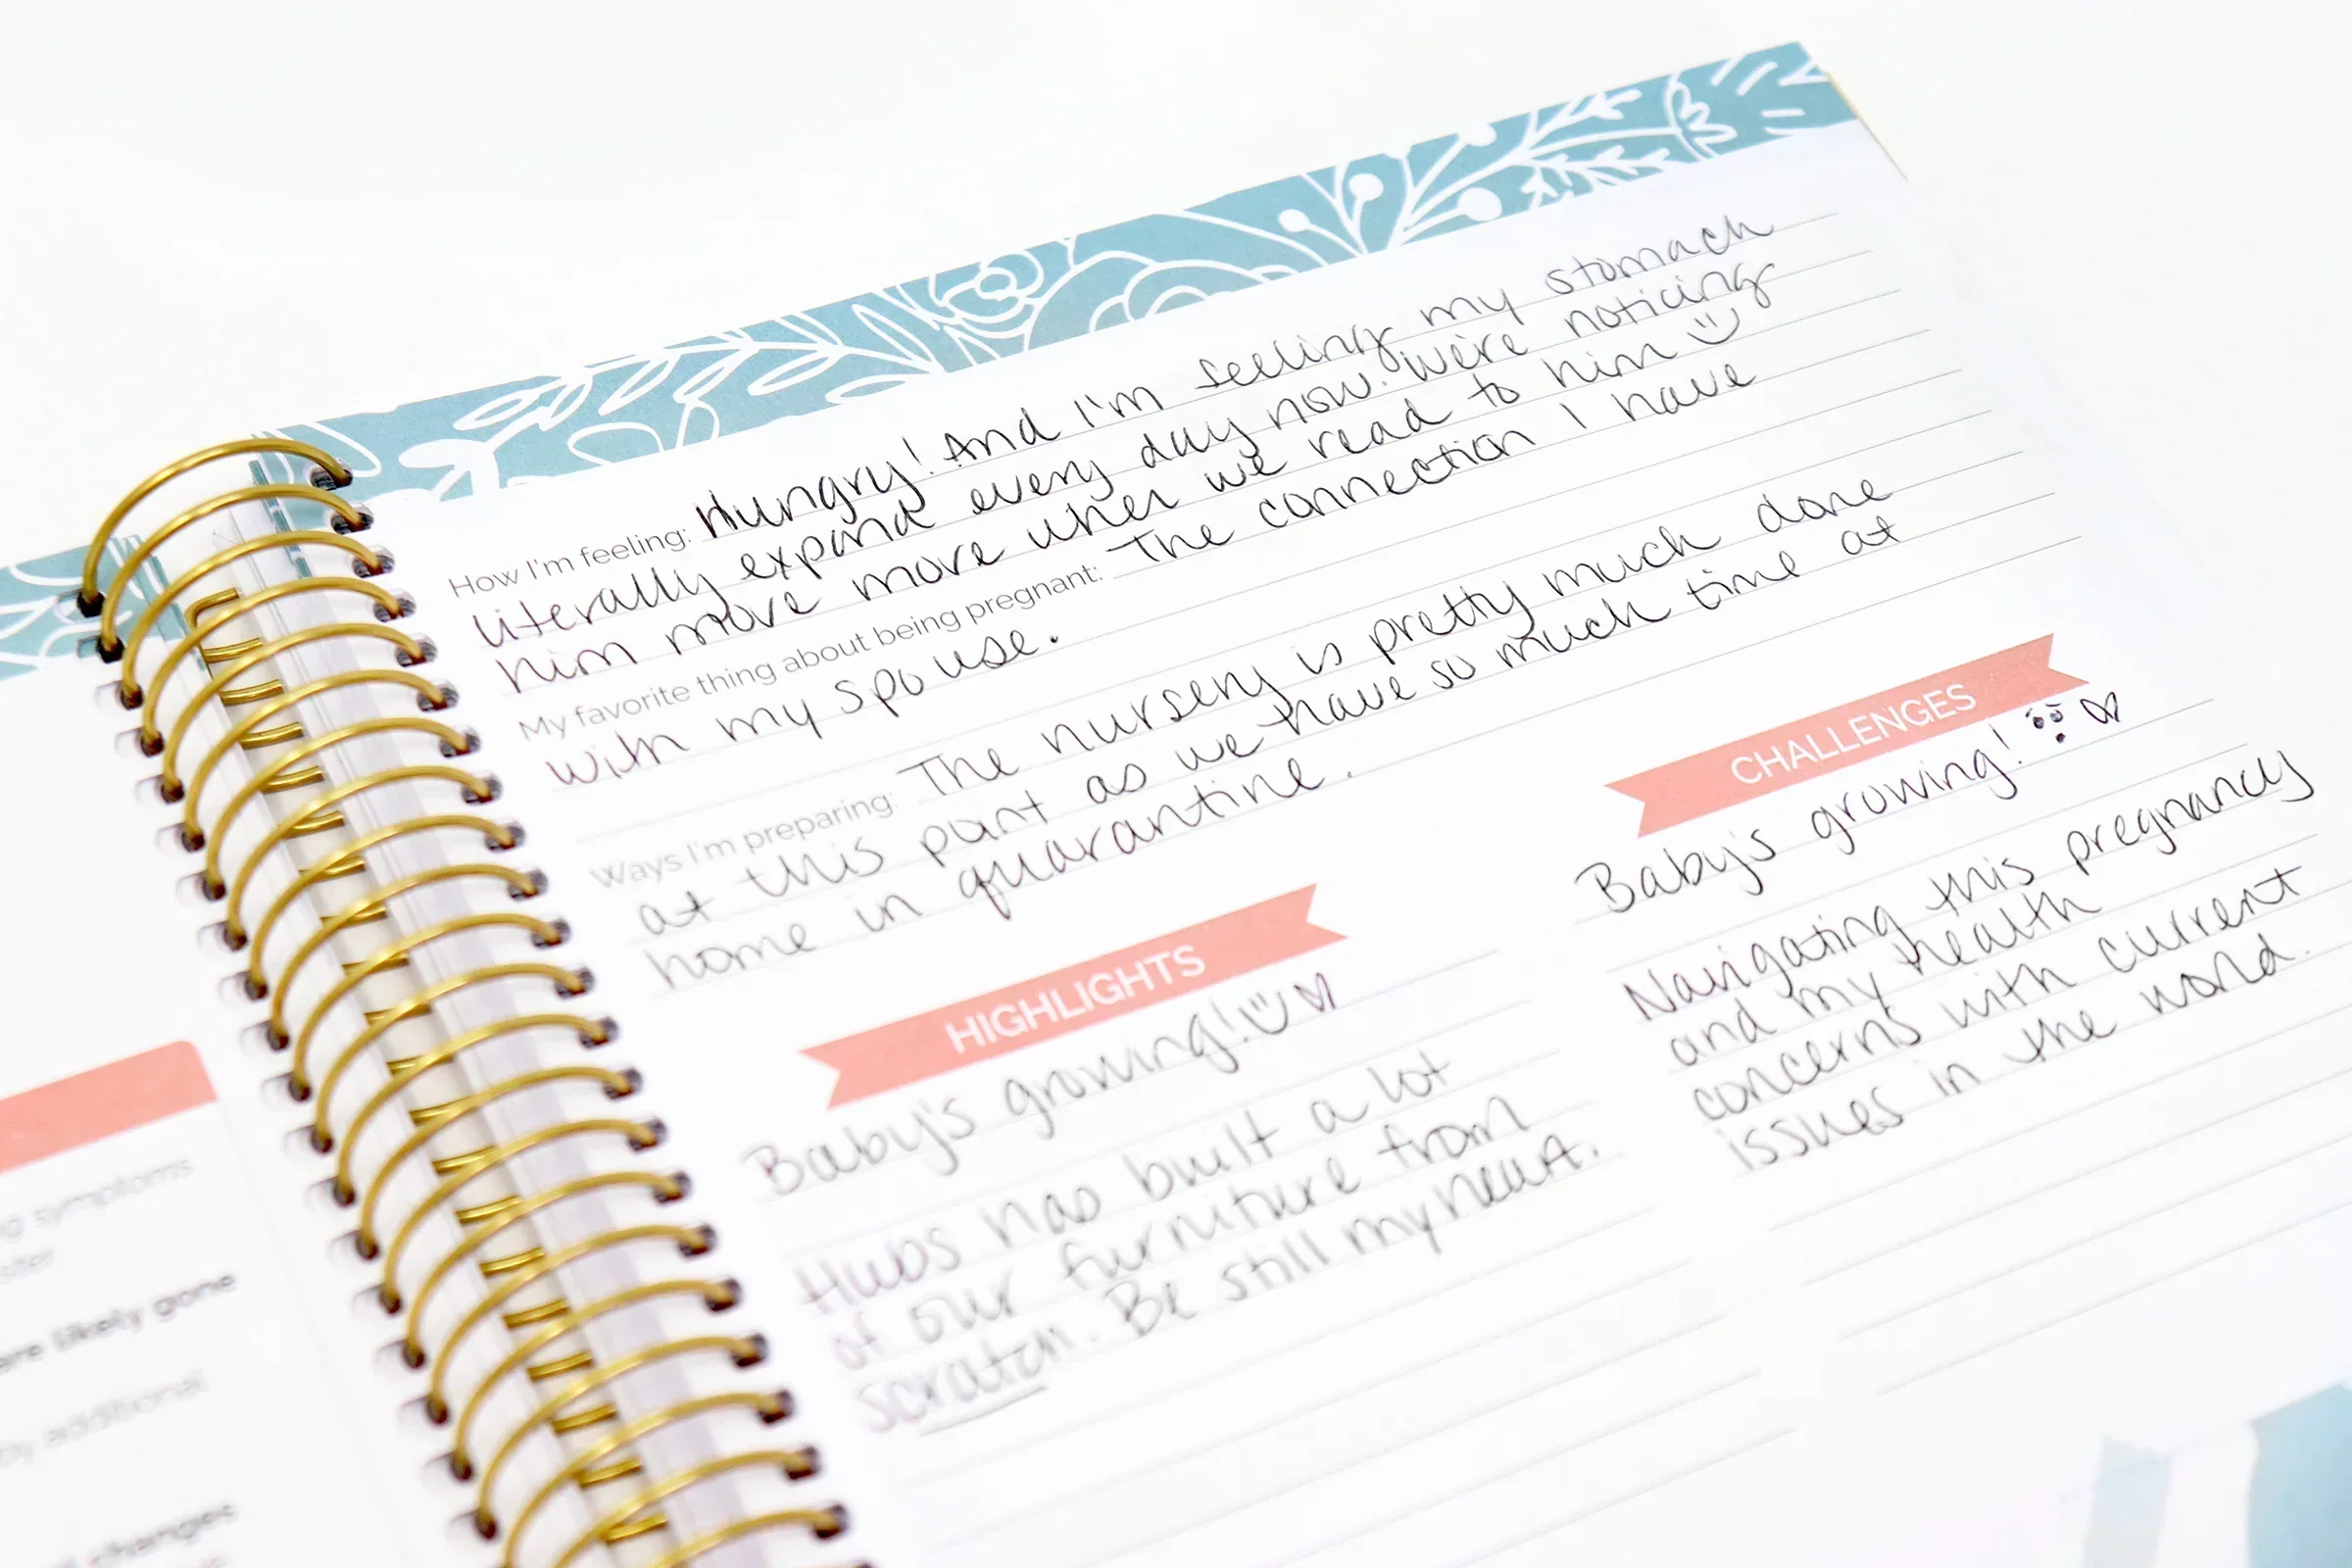 How I'm feeling: Hungry! And I'm seeing my stomach
literally expand every day now. We're noticing
him move more when we read to him
My favorite thing about being pregnant: The connection I have
with my spouse.
Ways I'm preparing: The nursery is pretty much done
at this point as we have so much time at
home in quarantine.
HIGHLIGHTS
Baby's growing!
Hubs has built a lot
of our furniture from
scratch. Be still my heart.
CHALLENGES
Baby's growing!
Navigating this pregnancy
and my health
concerns with current
issues in the world.
symptoms
are likely gone
by additional
changes